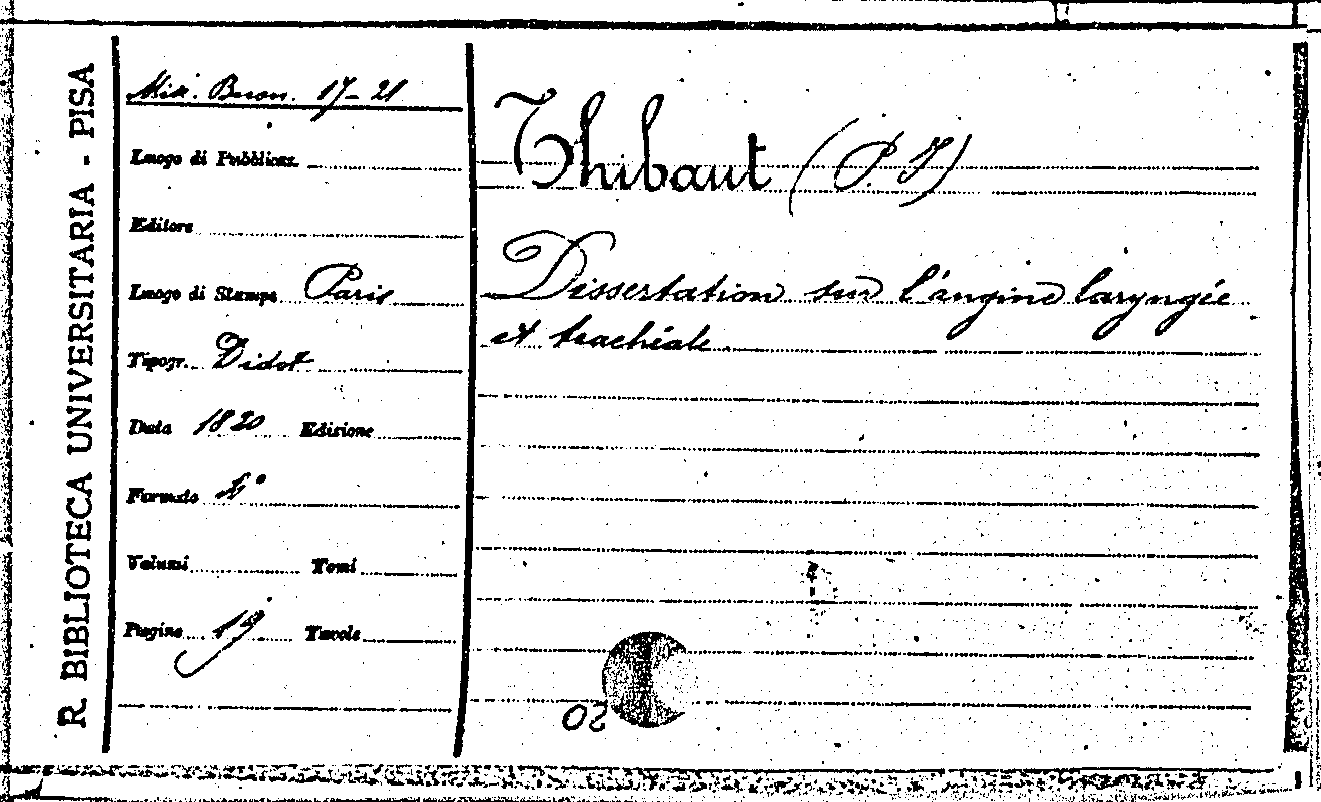 R. BIBLIOTECA UNIVERSITARIA - PISA
Misc. Buon. 17-21
Luogo di Pubblicaz.
Editore
Luogo di Stampa Paris
Tipogr. Didot
Data 1820 Edizione
Formato 4°
Volumi Tomi
Pagine 19 Tavole
Thibaut (P. J)
Dissertation sur l'angine laryngée
et trachéale